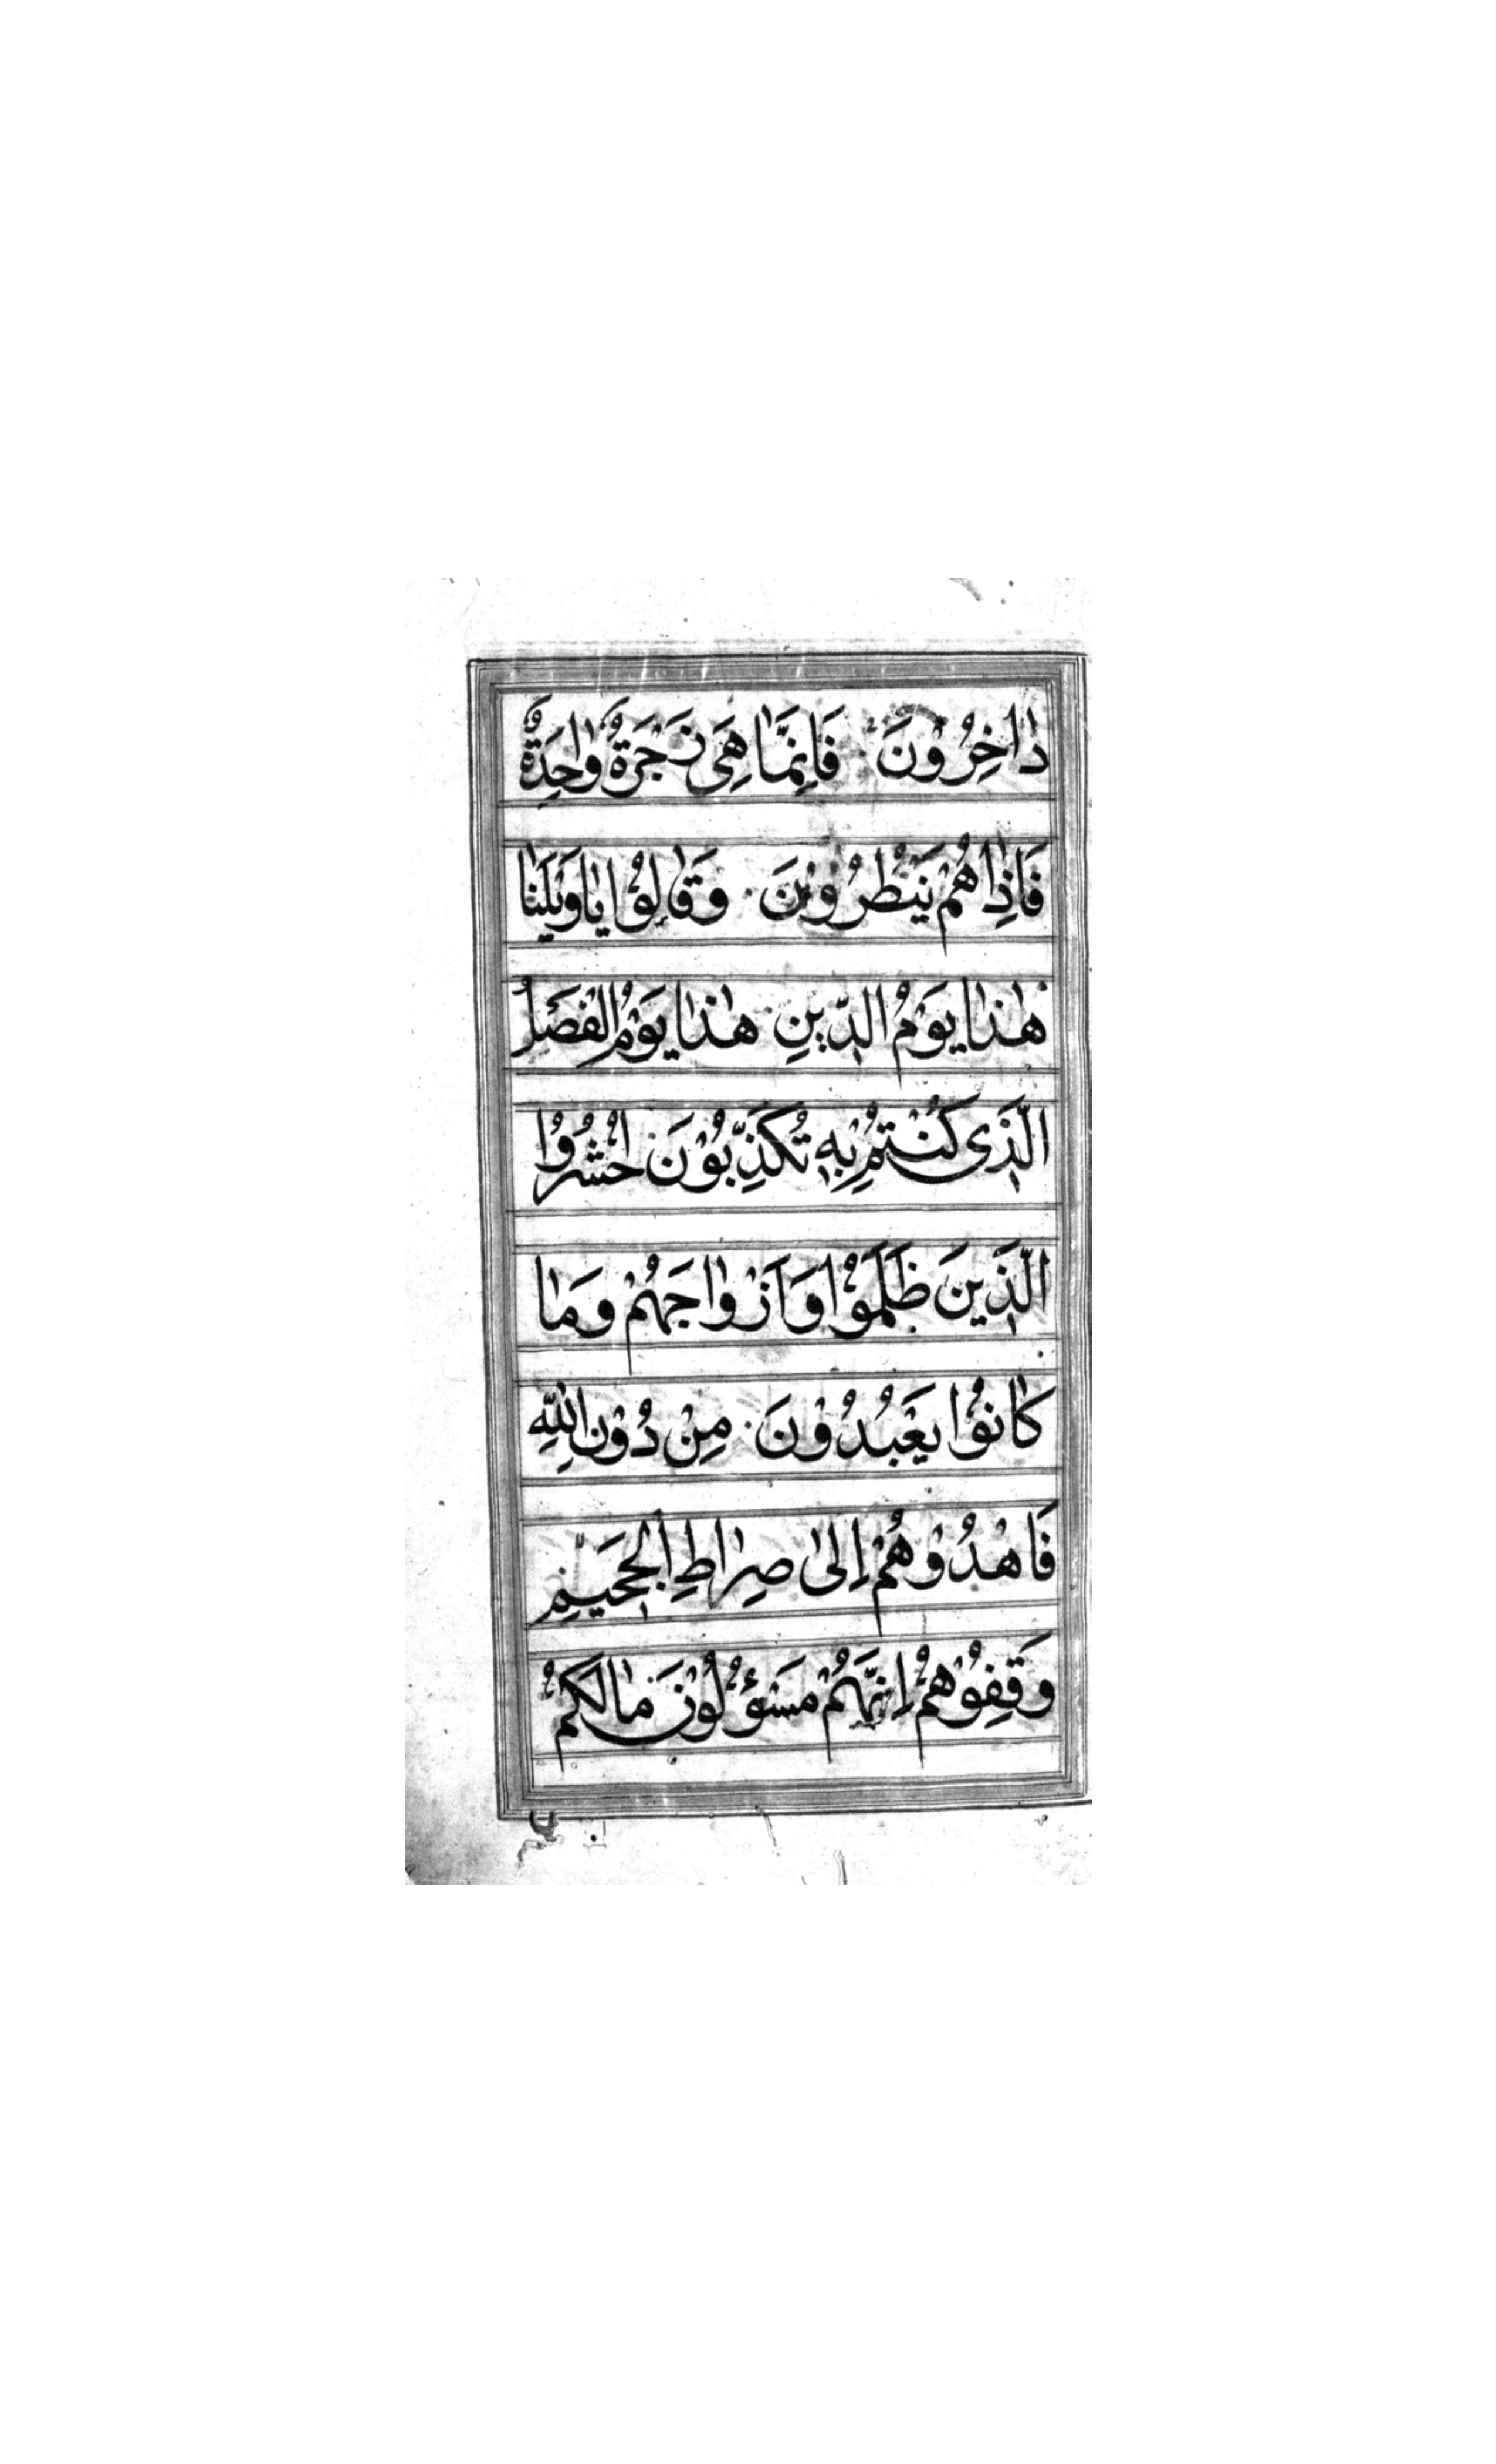 دٰاخِرُوْنَ فَاِنَّمٰا هِیَ زَجْرَةٌ وٰاحِدَةٌ
فَاِذٰا هُمْ یَنْظُرُوْنَ وَقٰالُوْا یٰاوَیْلَنٰا
هٰذٰا یَوْمُ الدّٖینِ هٰذٰا یَوْمُ الْفَصْلِ
الَّذٖی كُنْتُمْ بِهٖ تُكَذِّبُوْنَ اُحْشُرُوا
الَّذٖینَ ظَلَمُوْا وَاَزْوٰاجَهُمْ وَمٰا
كٰانُوْا یَعْبُدُوْنَ مِنْ دُوْنِ اللّٰهِ
فَاهْدُوْهُمْ اِلیٰ صِرٰاطِ الْجَحٖیمِ
وَقِفُوْهُمْ اِنَّهُمْ مَسْؤُلُوْنَ مٰالَكُمْ